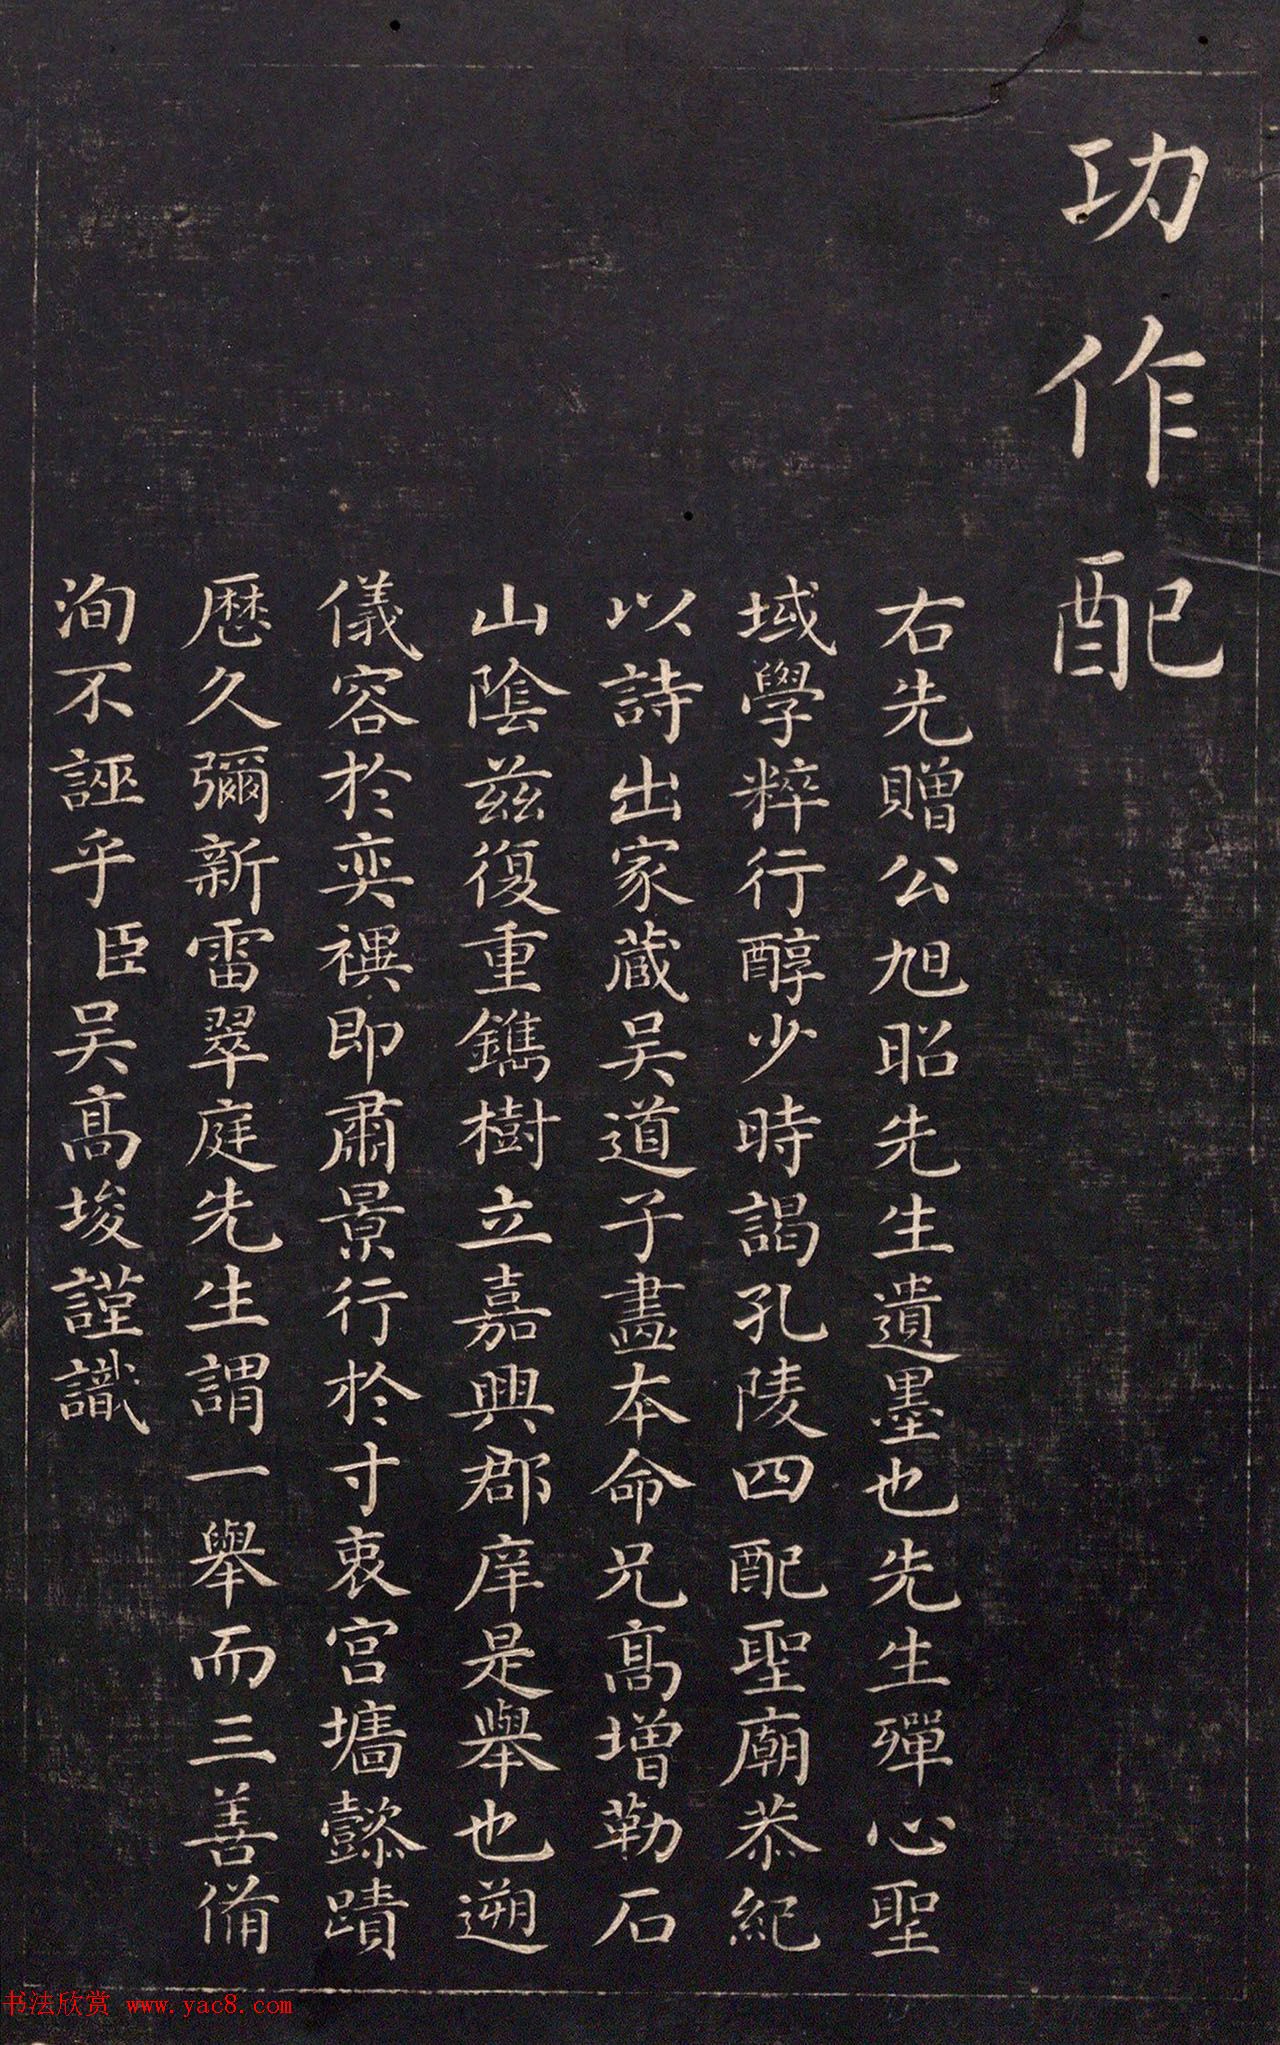 功作配
右先贈公旭昭先生遺墨也先生殫心聖
域學粹行醇少時謁孔陵四配聖廟恭紀
以詩出家蔵吴道子畫本命兄髙增勒石
山陰茲復重鐫樹立嘉興郡庠是舉也遡
儀容於奕禩即肅景行於寸衷宫墻懿蹟
歴久彌新雷翠庭先生謂一舉而三善備
洵不誣乎臣吴髙埈謹識
书法欣赏 www.yac8.com